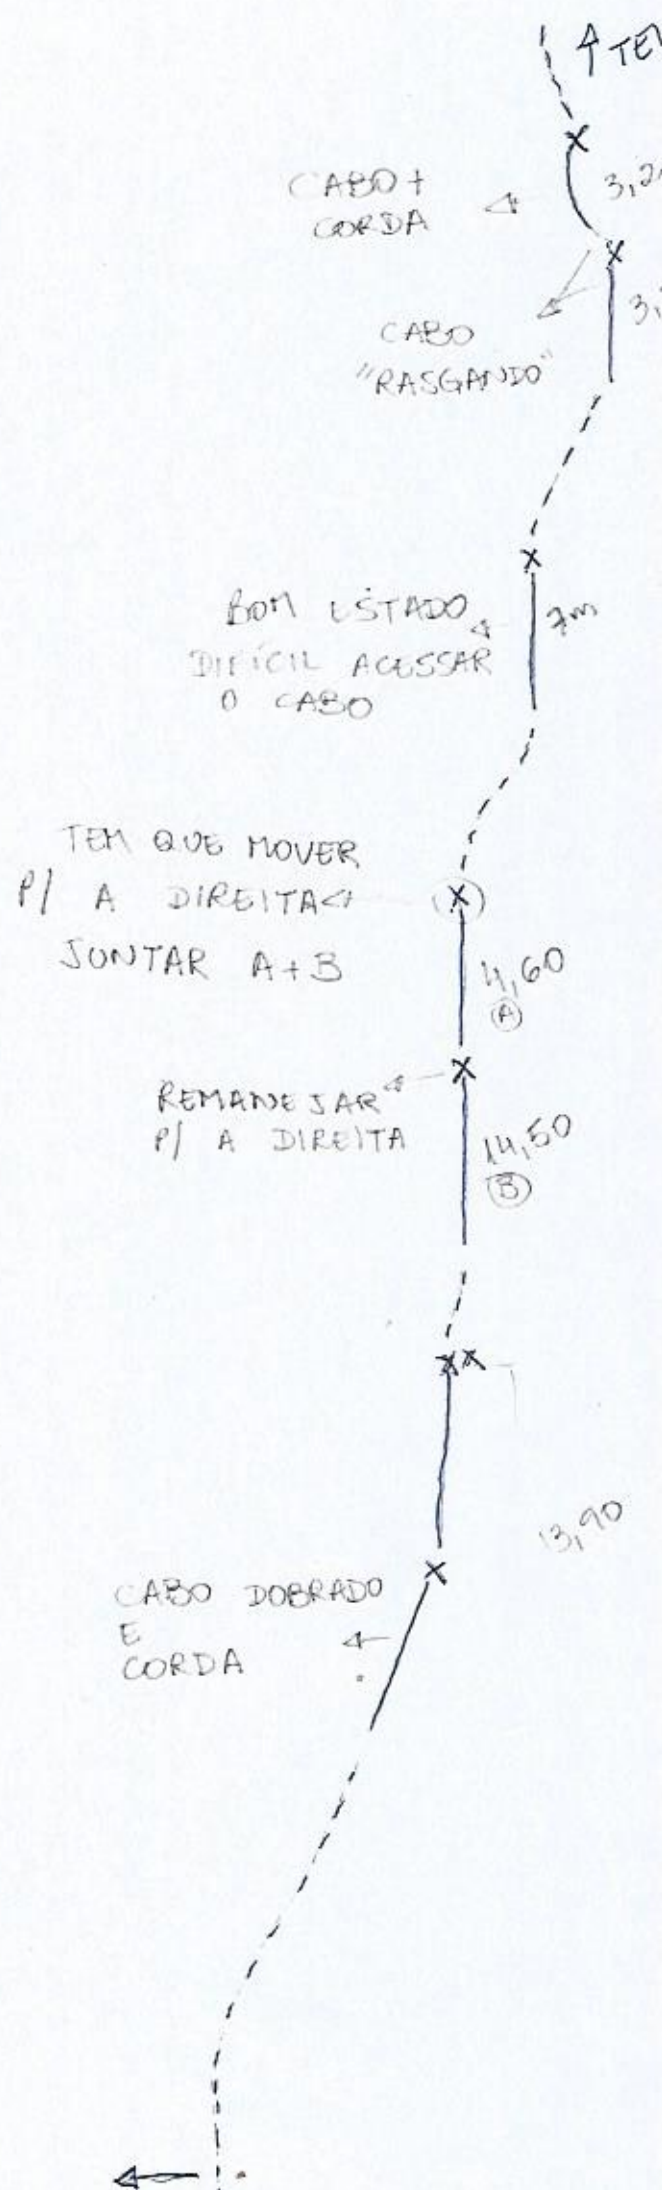 CABO +
CORDA
CABO
"RASGANDO"
BOM ESTADO
DIFÍCIL ACESSAR
O CABO
7m
TEM QUE MOVER
P/ A DIREITA
JUNTAR A+B
4,60
A
REMANEJAR
P/ A DIREITA
14,50
B
13,90
CABO DOBRADO
E
CORDA